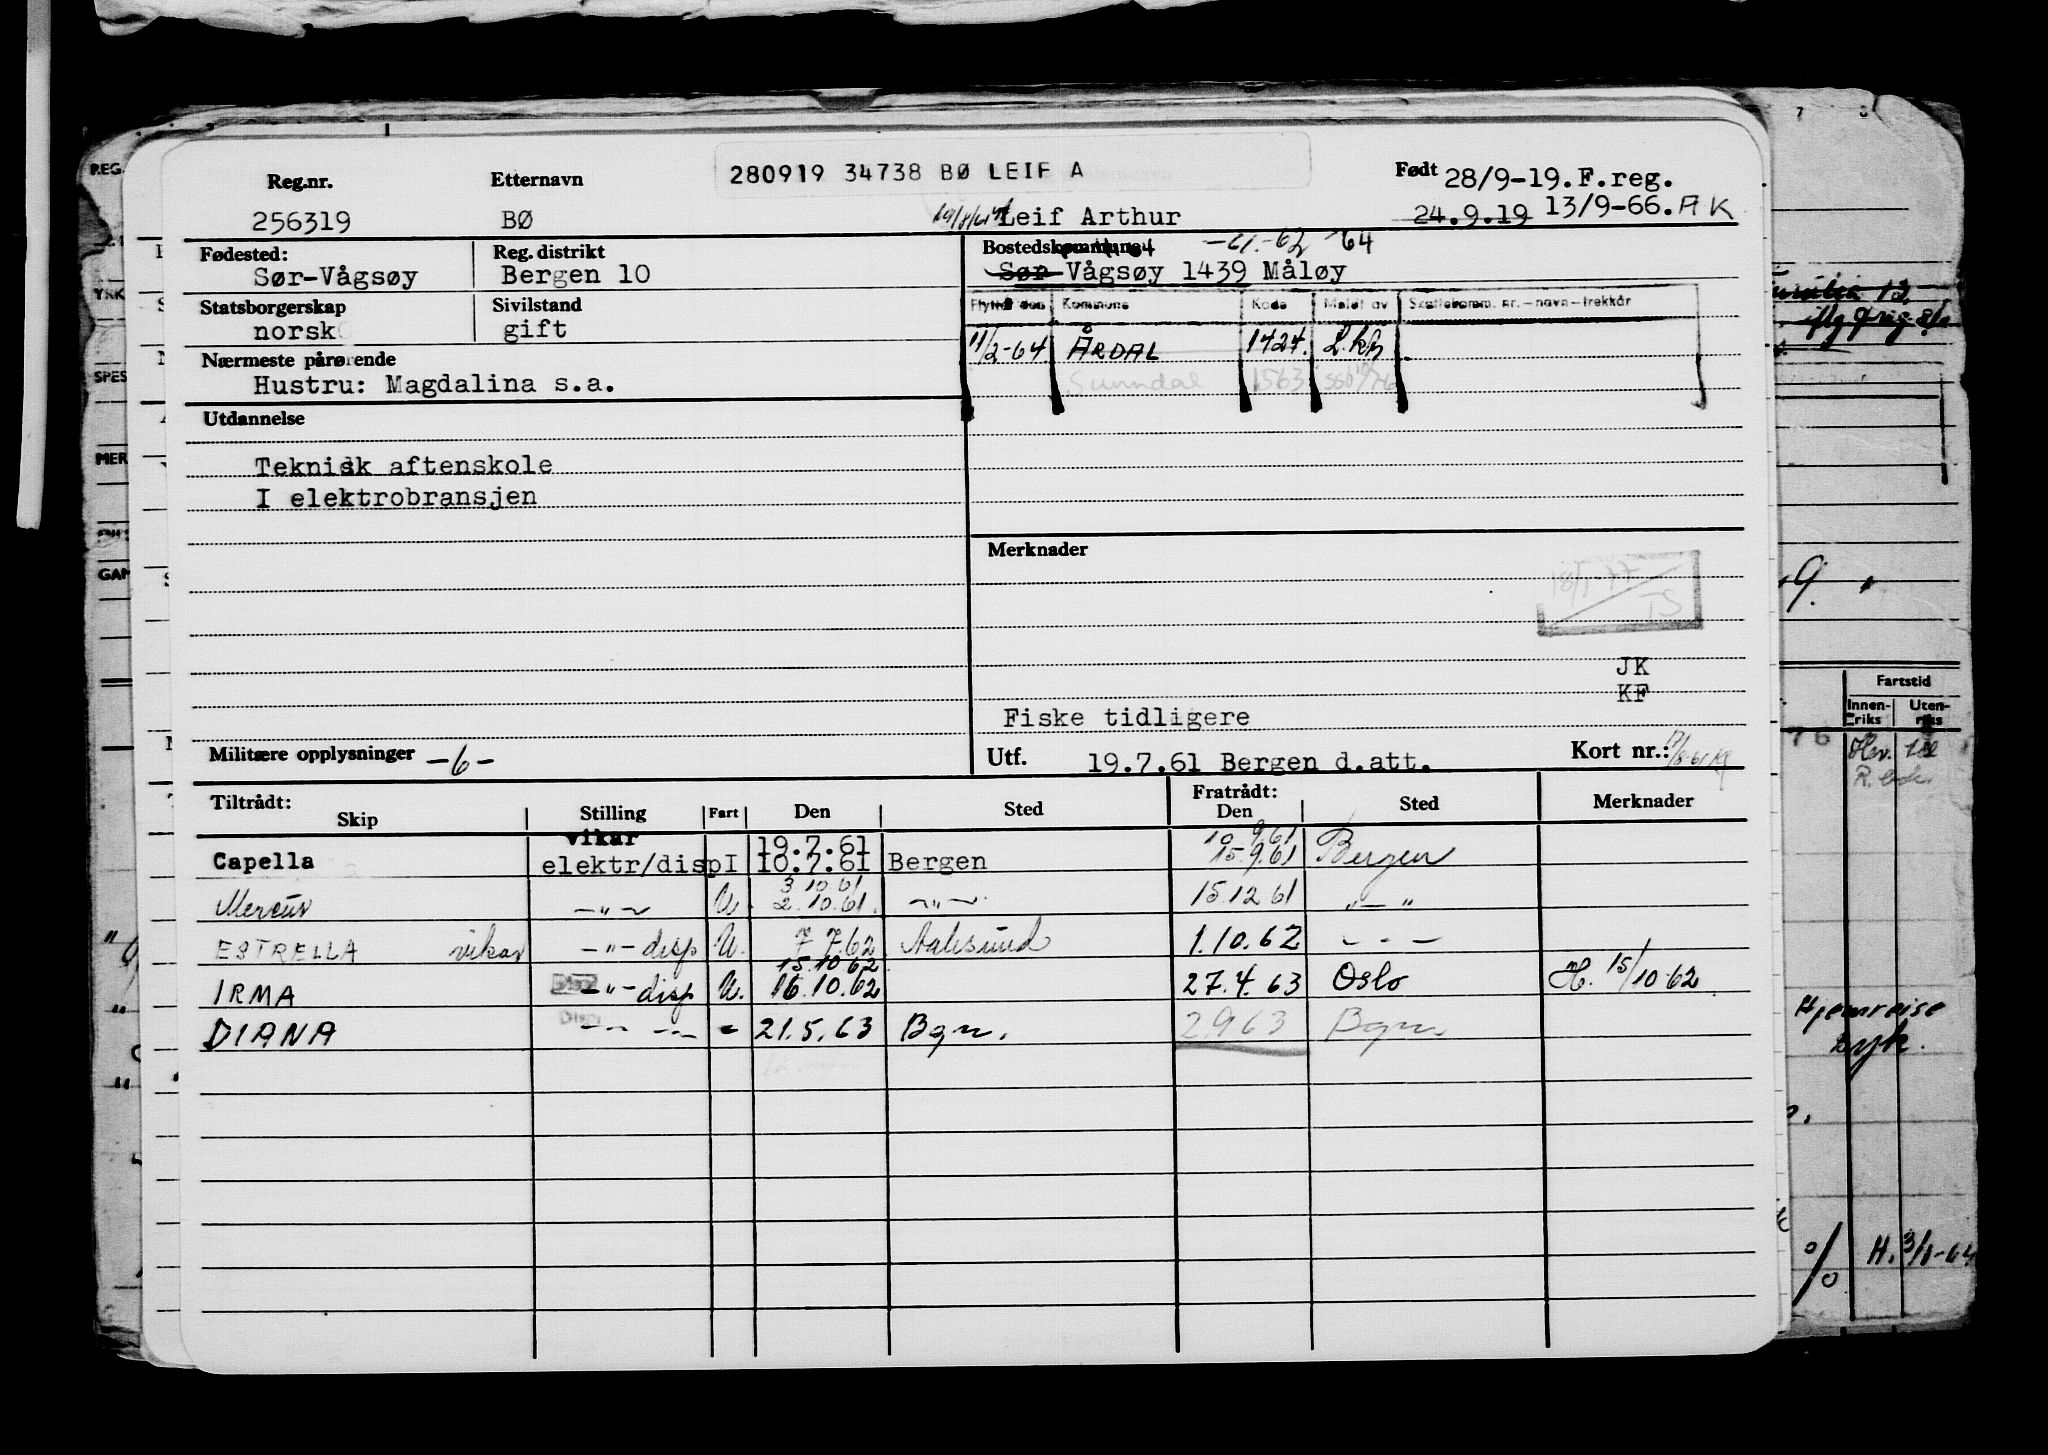 280919 34738 BØ LEIF A
Reg.nr. Etternavn Født 28/9-19.F.reg.
256319 BØ Leif Arthur 24.9.19 13/9-66. AK
Fødested: Reg. distrikt Bostedskommune -61.-62 -64
Sør-Vågsøy Bergen 10 Sør-Vågsøy 1439 Måløy
Statsborgerskap Sivilstand Flyttet den Kommune Kode Meldt av Skattekomm. nr. – navn – trekkår
norsk gift
11/2-64 ÅRDAL 1424.
Nærmeste pårørende
Hustru: Magdalina s.a. Sunndal 1563
Utdannelse
Teknisk aftenskole
I elektrobransjen
Merknader
18/1-77
TS
JK
KF
Fiske tidligere
Militære opplysninger -6- Utf. 19.7.61 Bergen d.att. Kort nr.:
Tiltrådt: Skip Stilling Fart Den Sted Fratrådt: Den Sted Merknader
vikar 19.7.61 10.9.61
Capella elektr/disp I 10.7.61 Bergen 15.9.61 Bergen
3.10.61
Mercur -"- U. 2.10.61. -"- 15.12.61 "-"
ESTRELLA vikar -"- disp U. 7.7.62 Aalesund 1.10.62 - - -
15.10.62
IRMA -"- disp U. 16.10.62 27.4.63 Oslo H. 15/10 62
DIANA -- -- - 21.5.63 Bgn. 2963 Bgn.
Fartstid
Innenriks Utenriks
Hjemreise
H. 3/1-64
REG.
YRK
SPES
MER
GAM